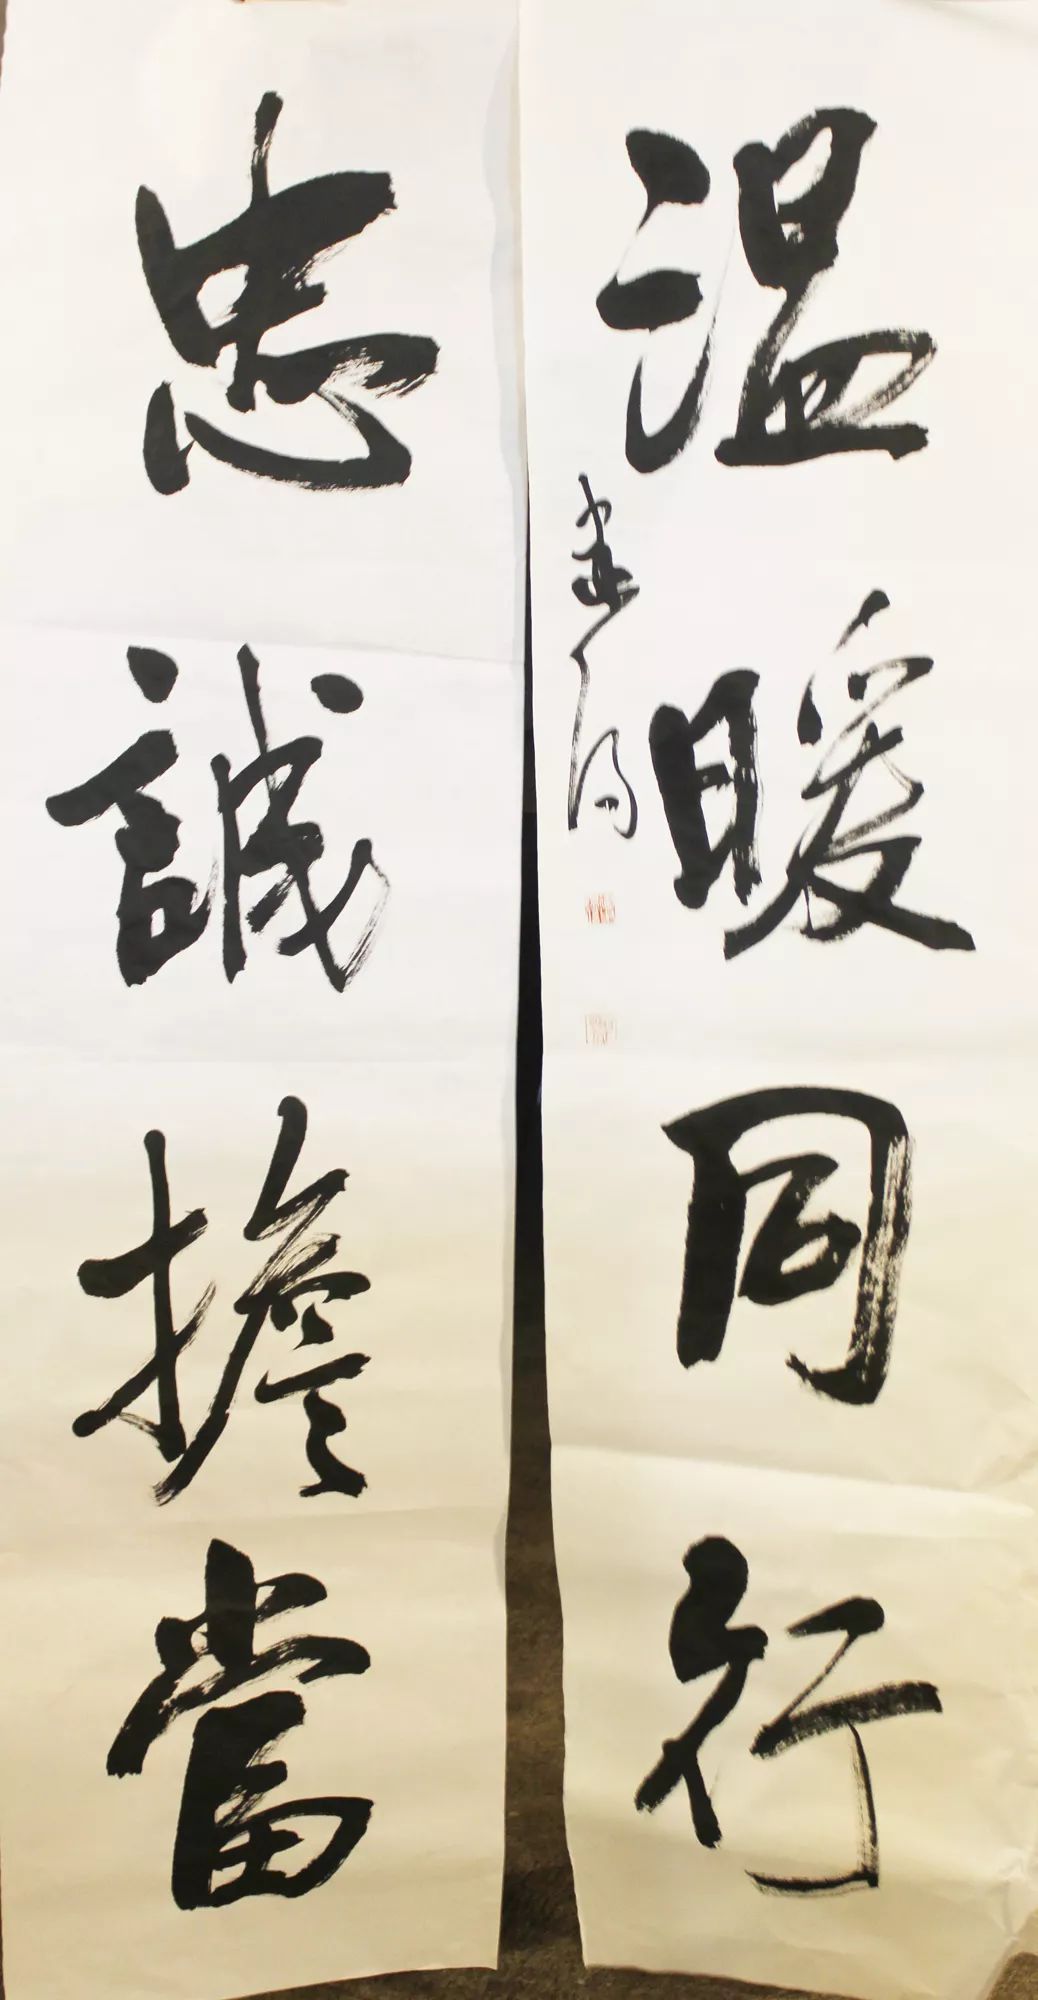 忠誠擔當
溫暖同行